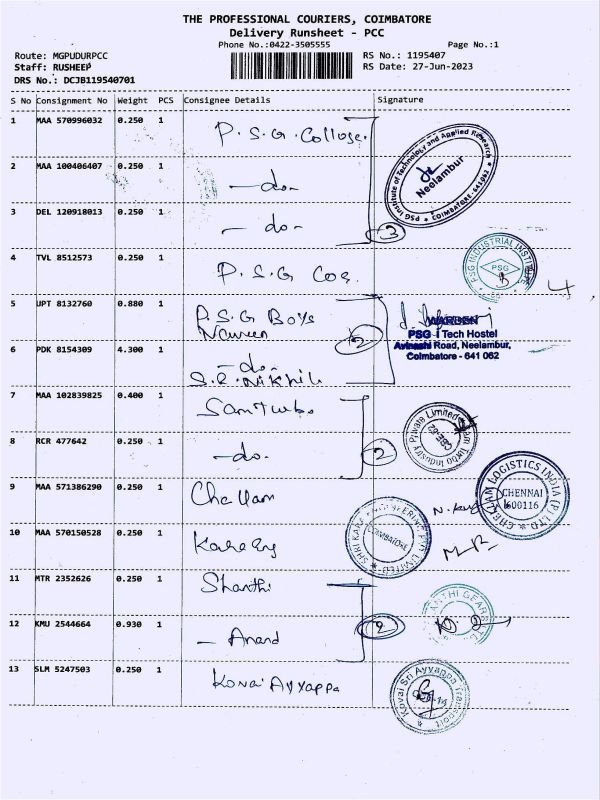 THE PROFESSIONAL COURIERS, COIMBATORE
Delivery Runsheet - PCC
Phone No.:0422-3505555
Page No.:1
Route: MGPUDURPCC
RS No.: 1195407
Staff: RUSHEEP
RS Date: 27-Jun-2023
DRS No.: DCJB119540701
S No Consignment No Weight PCS Consignee Details Signature
1 MAA 570996032 0.250 1 P.S.G. College.
PSG Institute of Technology and Applied Research
Neelambur
COIMBATORE-641062
2 MAA 100406407 0.250 1 -do-
3 DEL 120918013 0.250 1 -do- 3
4 TVL 8512573 0.250 1 P.S.G
PSG INDUSTRIAL INSTITUTE
PSG
5 UPT 8132760 0.880 1 P.S.G Boys
Naveen
2
WARDEN
PSG iTech Hostel
Avinashi Road, Neelambur,
Coimbatore - 641 062
6 PDK 8154309 4.300 1 -do-
S.R. Nikhil
7 MAA 102839825 0.400 1
Turbo Industry Private Limited
8 RCR 477642 0.250 1 -do. 2
9 MAA 571386290 0.250 1 Chellam
CHELLAM LOGISTICS INDIA (P) LTD
CHENNAI
600116
10 MAA 570150528 0.250 1
COIMBATORE
11 MTR 2352626 0.250 1 Shanthi
12 KMU 2544664 0.930 1 - Anand 2
13 SLM 5247503 0.250 1 Kovai Ayyappa
Kovai Sri Ayyappa Transport